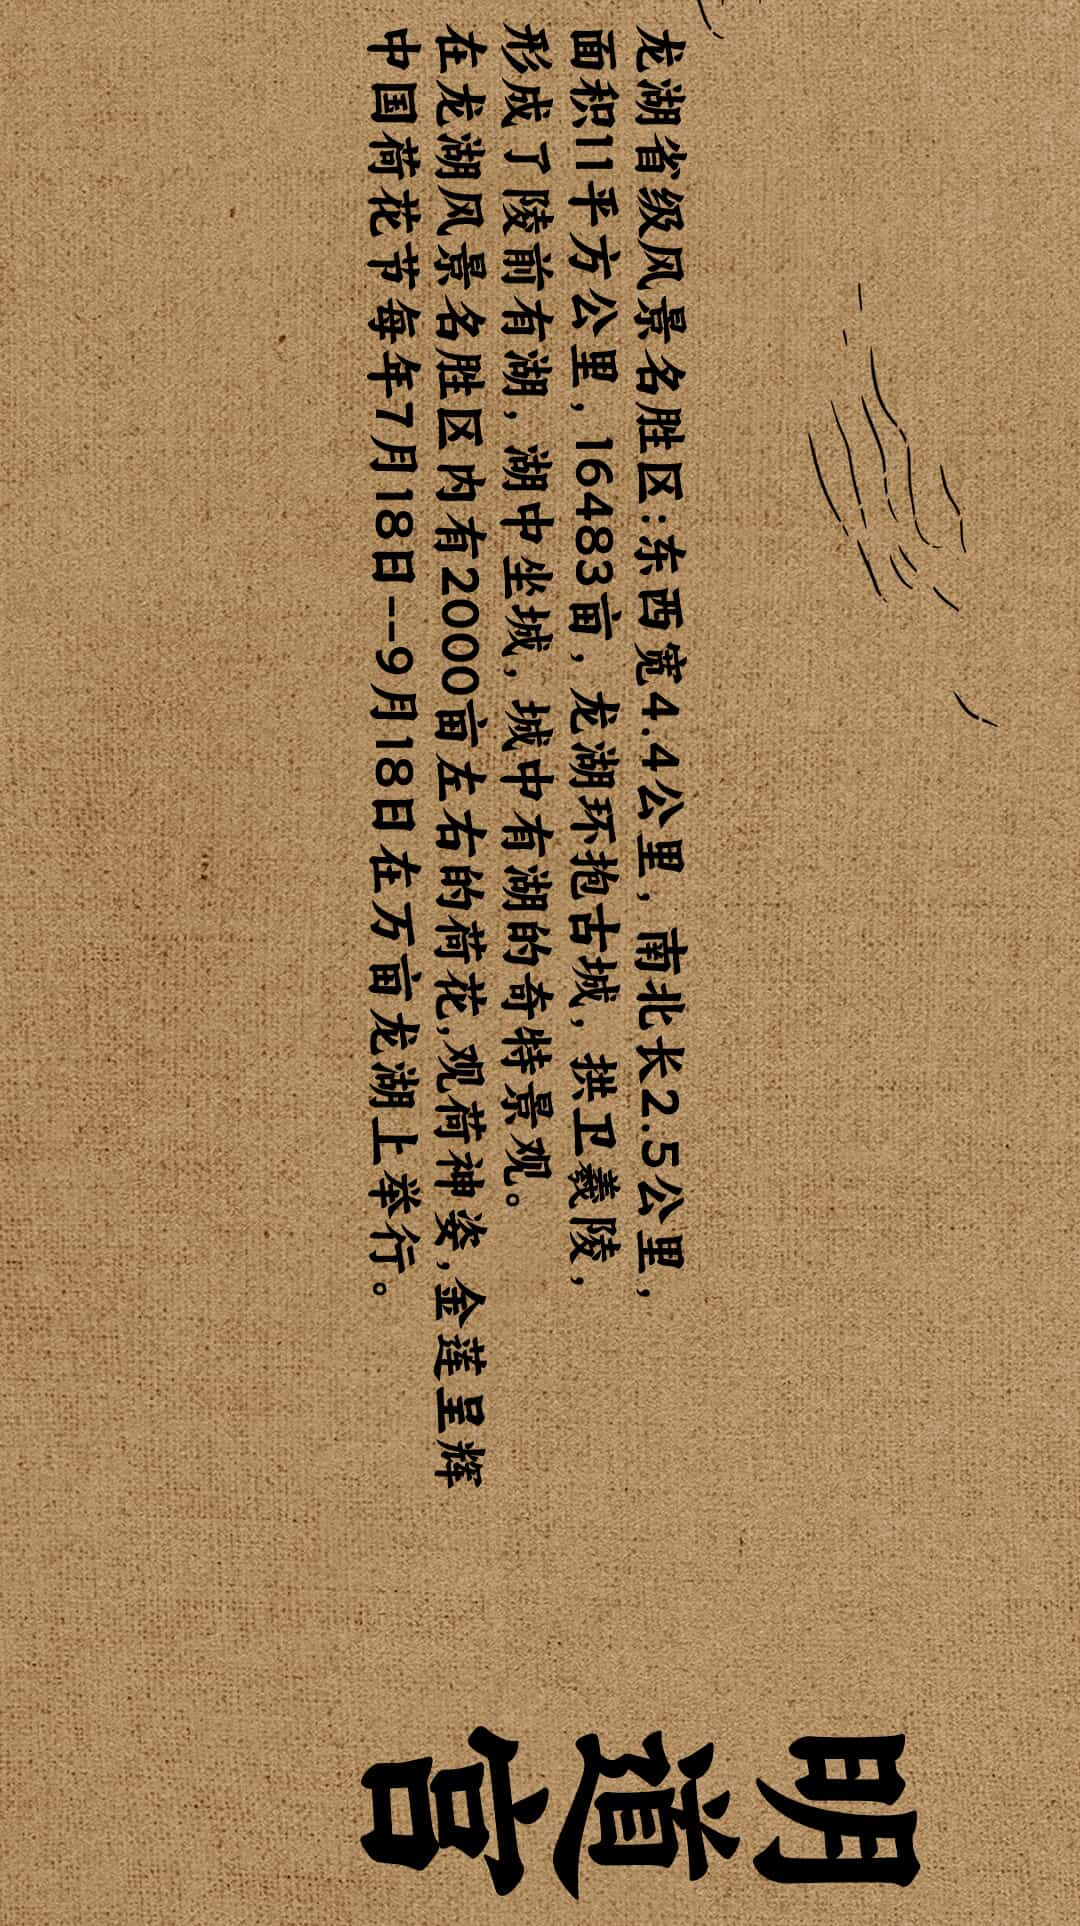 龙湖省级风景名胜区:东西宽4.4公里，南北长2.5公里，
面积11平方公里，16483亩，龙湖环抱古城，拱卫羲陵，
形成了陵前有湖，湖中坐城，城中有湖的奇特景观。
在龙湖风景名胜区内有2000亩左右的荷花,观荷神姿,金莲呈辉
中国荷花节每年7月18日--9月18日在万亩龙湖上举行。
明道宫